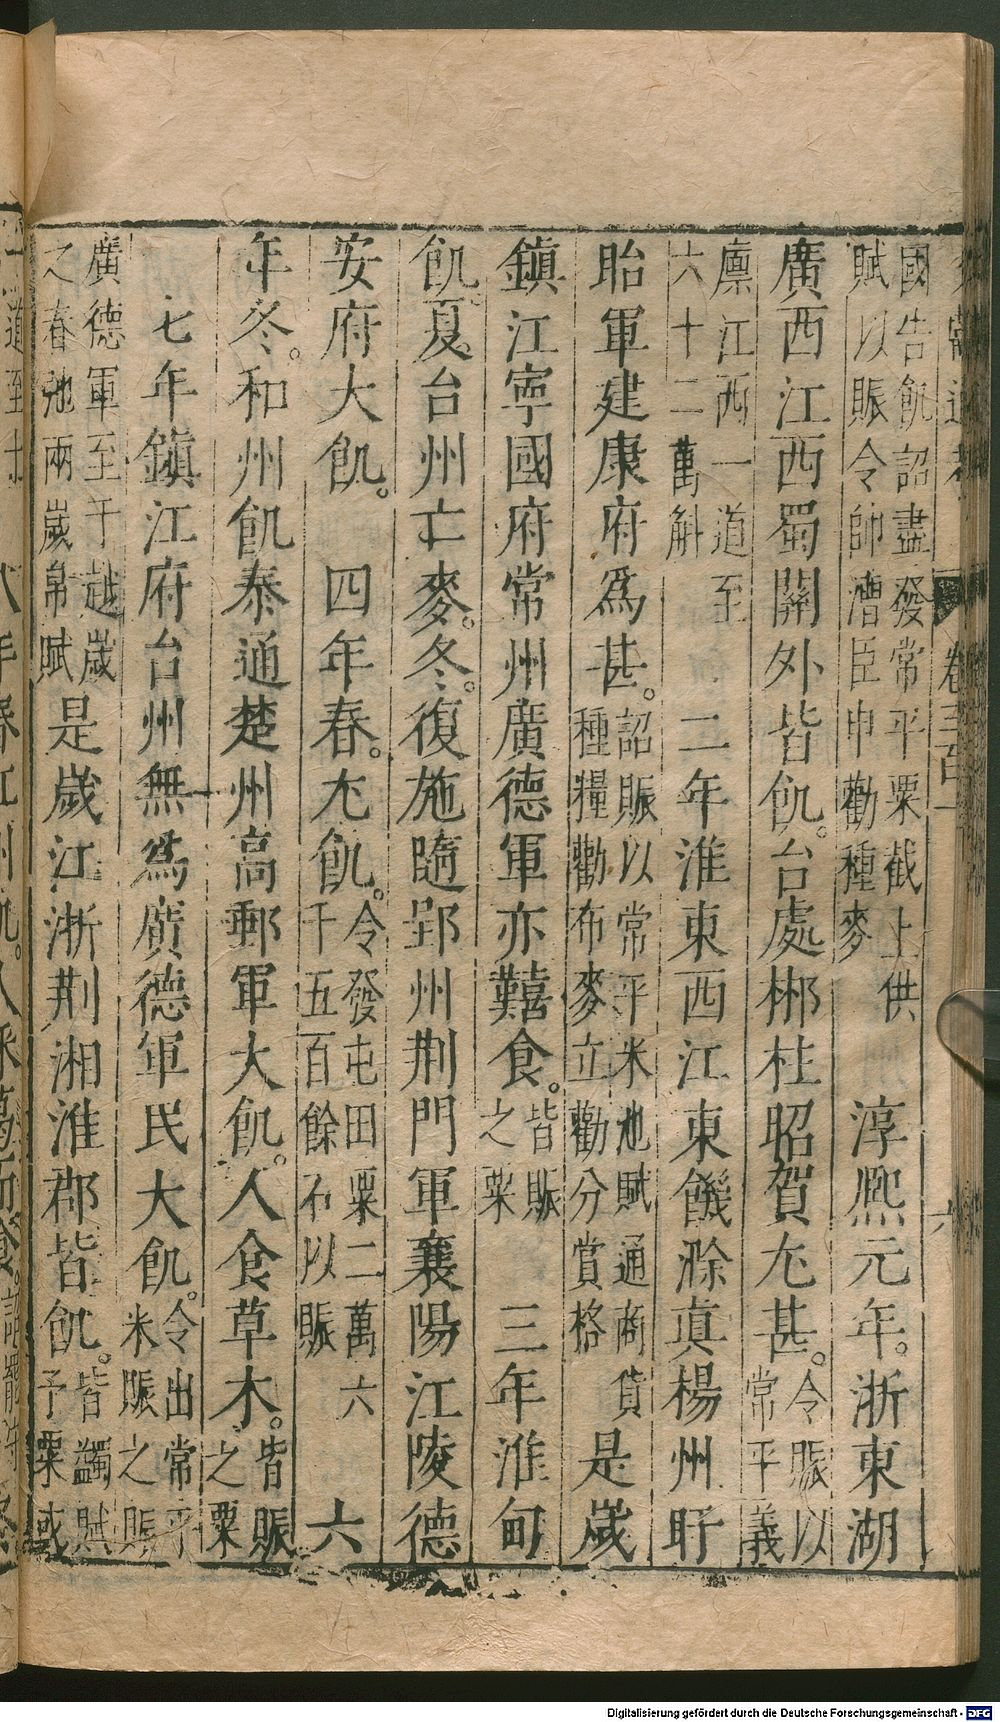 國告飢詔盡發常平粟截上供
賦以賑令帥漕臣申勸種麥
淳熈元年。浙東湖
廣西江西蜀關外皆飢。台處郴桂昭賀尤甚。
令賑以
常平義
廪江西一道至
六十二萬斛
二年淮東西江東饑滁真楊州盱
眙軍建康府爲甚。
詔賑以常平米貸賦通商貨
種糧勸布麥立勸分賞格
是歲
鎮江寧國府常州廣德軍亦囏食。
皆賑
之粟
三年淮甸
飢。夏。台州亡麥。冬。復施隨郢州荆門軍襄陽江陵德
安府大飢。四年春。尤飢。
令發屯田粟二萬六
千五百餘石以賑
六
年冬。和州飢泰通楚州高郵軍大飢。人食草木。
皆賑
之粟
七年鎮江府台州無爲廣德軍民大飢。
令出常平
米賑之賑
廣德軍至于越歲
之春池兩歲帛賦
是歲江浙荆湘淮郡皆飢。
皆蠲賦
予粟或
卷三百一
六
Digitalisierung gefördert durch die Deutsche Forschungsgemeinschaft - DFG